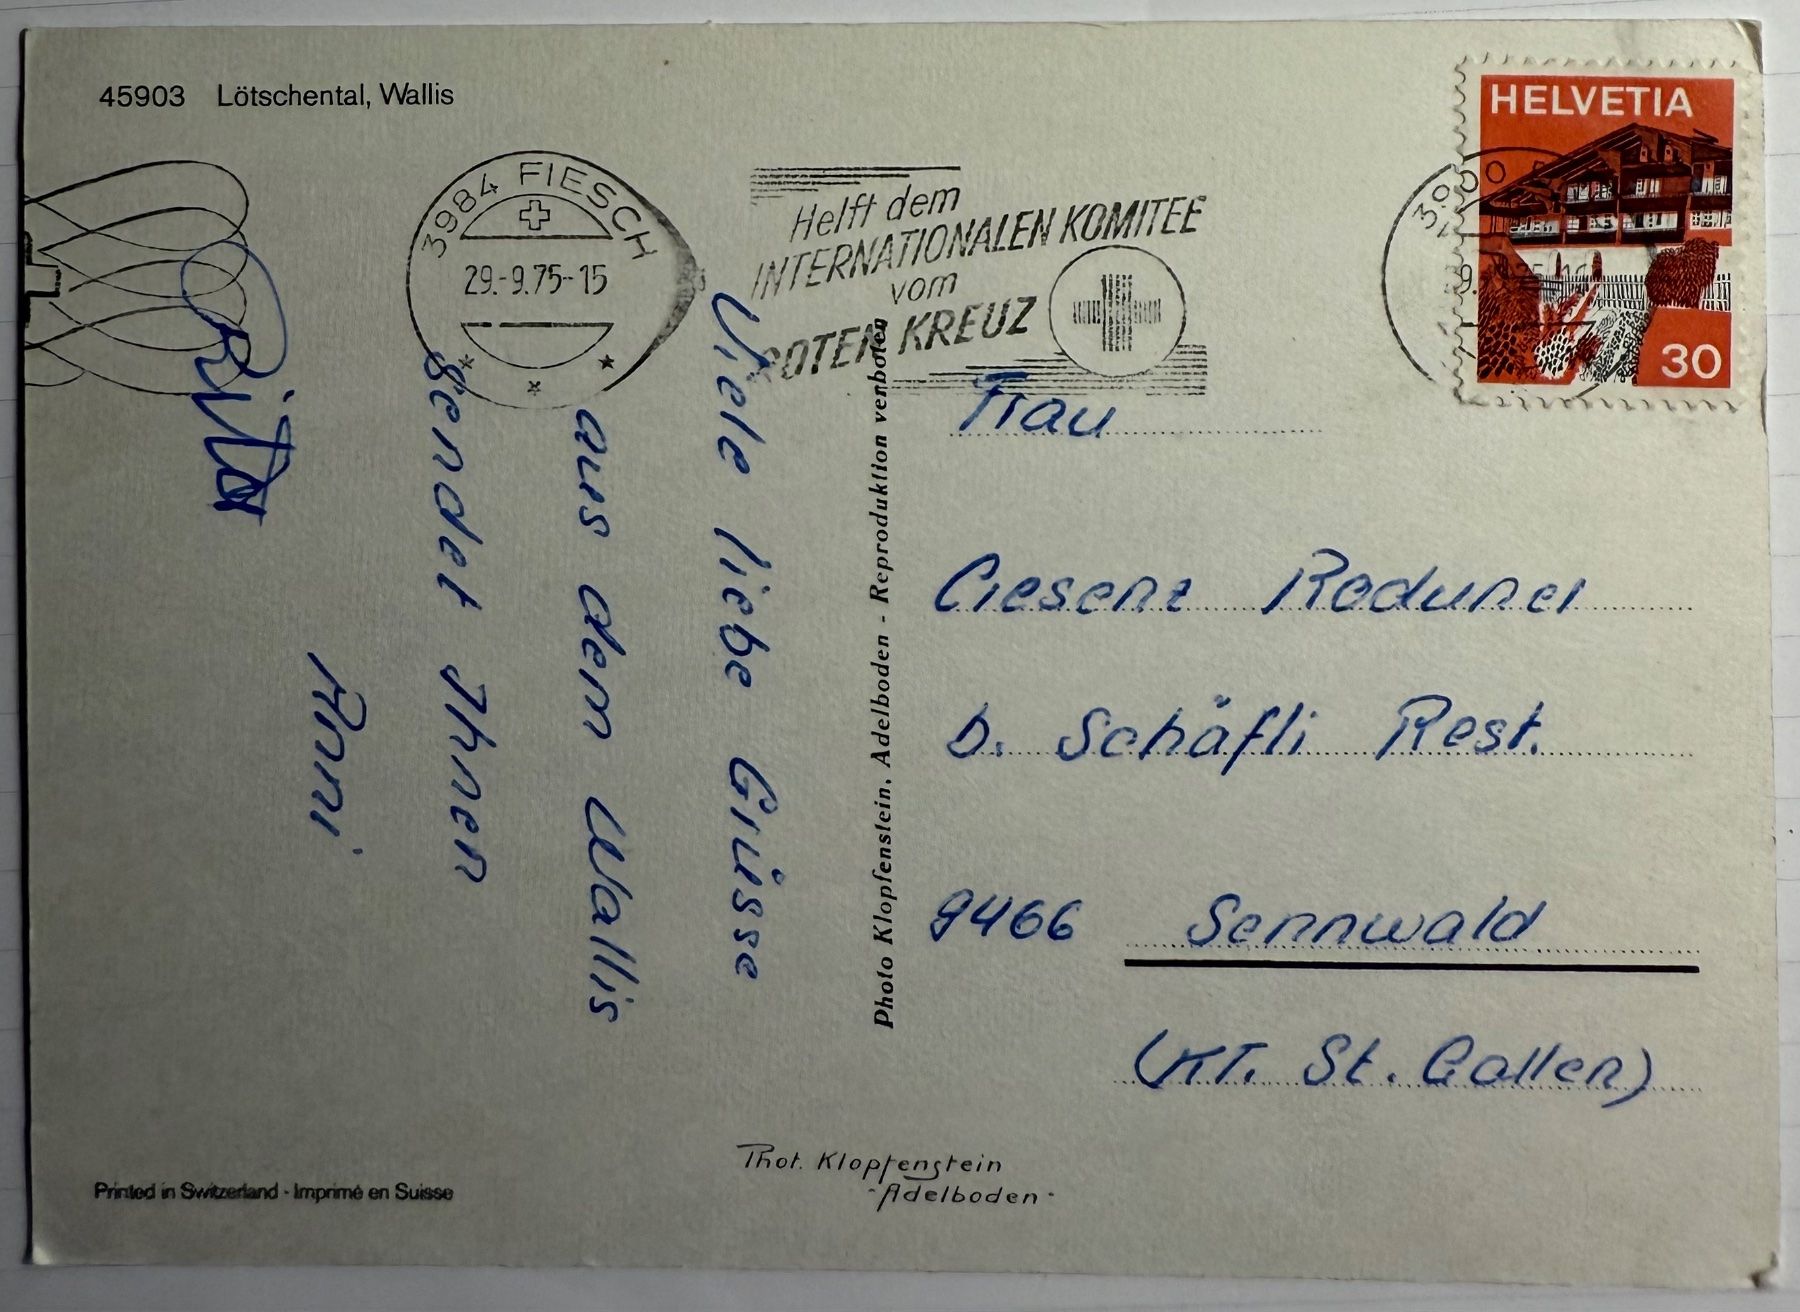 45903 Lötschental, Wallis
HELVETIA
30
3984 FIESCH
29.-9.75-15
Helft dem
INTERNATIONALEN KOMITEE
vom
ROTEN KREUZ
Viele liebe Grüsse
aus dem Wallis
sendet Ihnen
Anni
Rita
Photo Klopfenstein, Adelboden - Reproduktion verboten
Frau
Cresenz Roduner
b. Schäfli Rest.
9466 Sennwald
(KT. St. Gallen)
Phot. Klopfenstein
- Adelboden -
Printed in Switzerland - Imprimé en Suisse